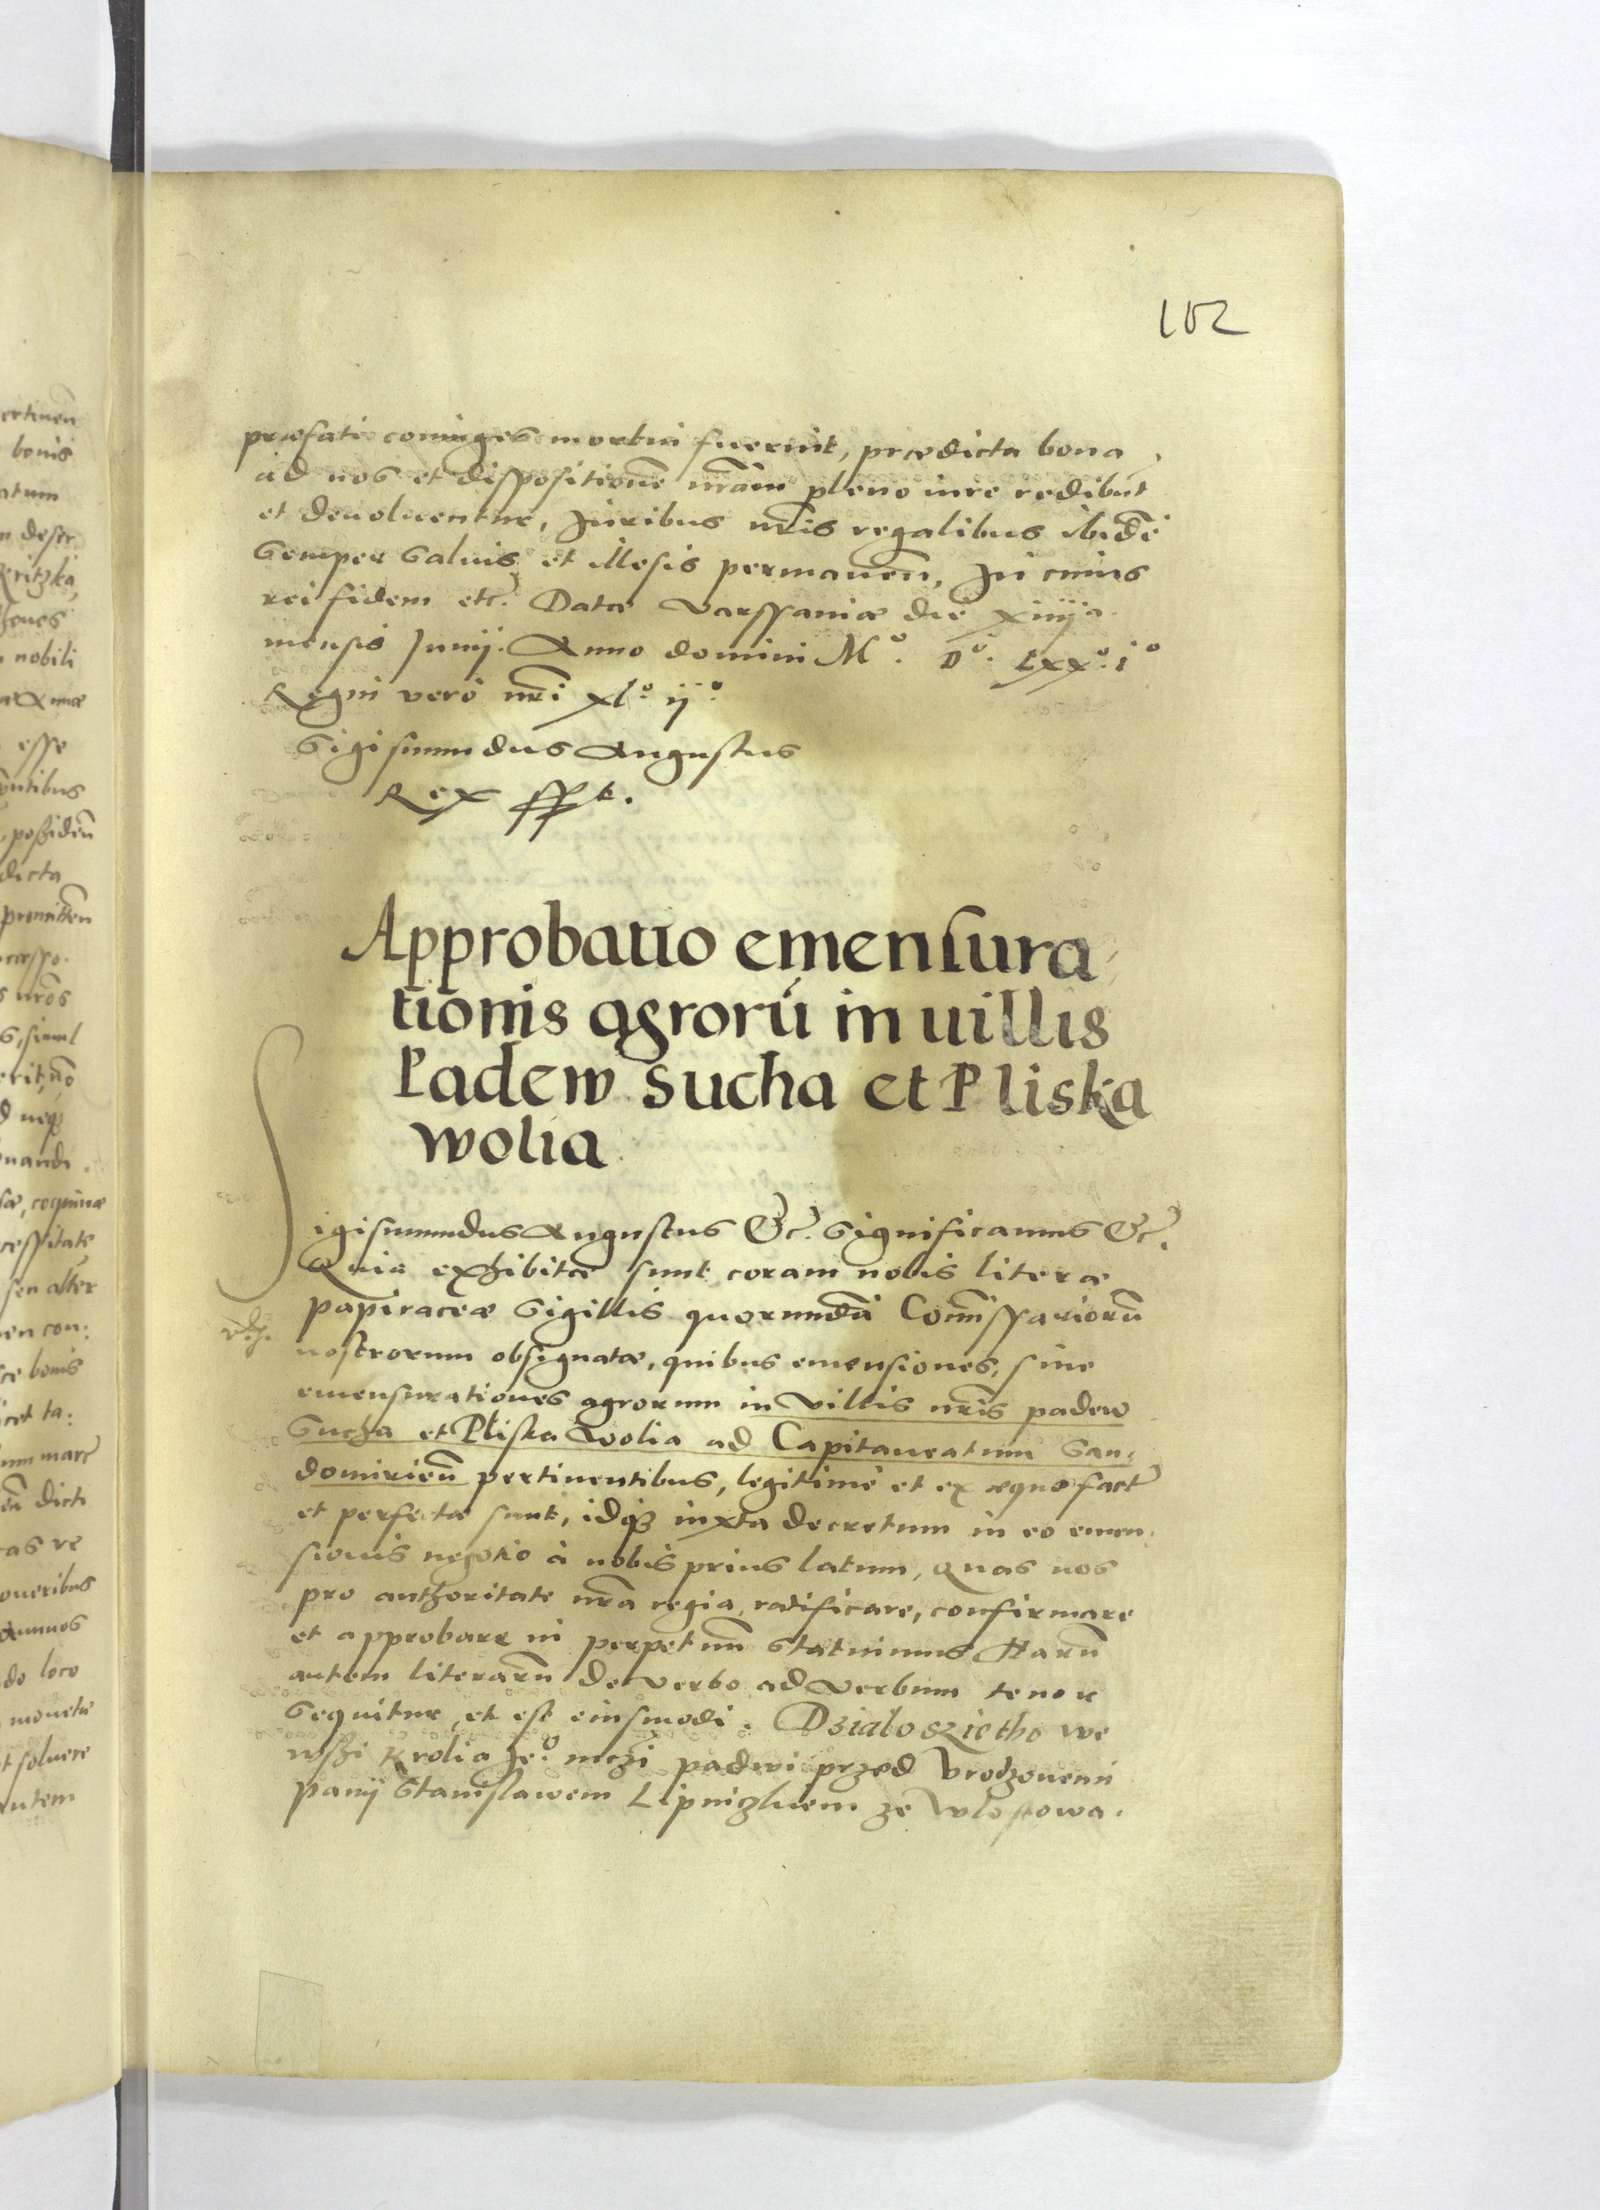 102
præfati coniuges mortui fuerint, prædicta bona
ad nos et dispositionē nr̄am pleno iure redibūt
et deuoluentur, Juribus nr̄is regalibus ibidē
semper saluis et illesis permanen̄, In cuius
rei fidem etc. Datæ Varssauiæ die xiiija
mensis Junij. Anno domini Mº. Dº. Lxxº. iº
Regni vero nr̄i xlº. ijº
Sigismundus Augustus
Rex sspt.
Approbatio emensura
tionis agrorū in uillis
Padew sucha et Pliska
wolia
Sigismundus Augustus &c. Significamus &c.
Quia exhibitæ sunt coram nobis literæ
papiraceæ sigillis quorundā Com̄issariorū
nostrorum obsignatæ, quibus emensiones, siue
emensurationes agrorum in Villis nr̄is padew
Sucha et Pliska Wolia ad Capitaneatum San:
domirien̄ pertinentibus, legitime et ex æquo fact
et perfectæ sunt, idq3 iuxta decretum in eo emen:
sionis negotio à nobis prius latum, Quas nos
pro authoritate nr̄a regia, ratificare, confirmare
et approbare in perpetuū statuimus Harū
autem literarū de verbo ad verbum tenor
sequitur, et est eiusmodi. Dzialo sziethо we
wszi Krolia Jeº mczi padwi przed Vrodzonemi
panij Stanislawem Lipniczkiem ze Wlostowa.
ertinen̄
bonis
atum
n descr
Kritzka,
nobili
esse
possiden̄
dicta
promitten̄
s nr̄os
bonis
dicti
as re
oneribus
annos
do loco
soluere
autem